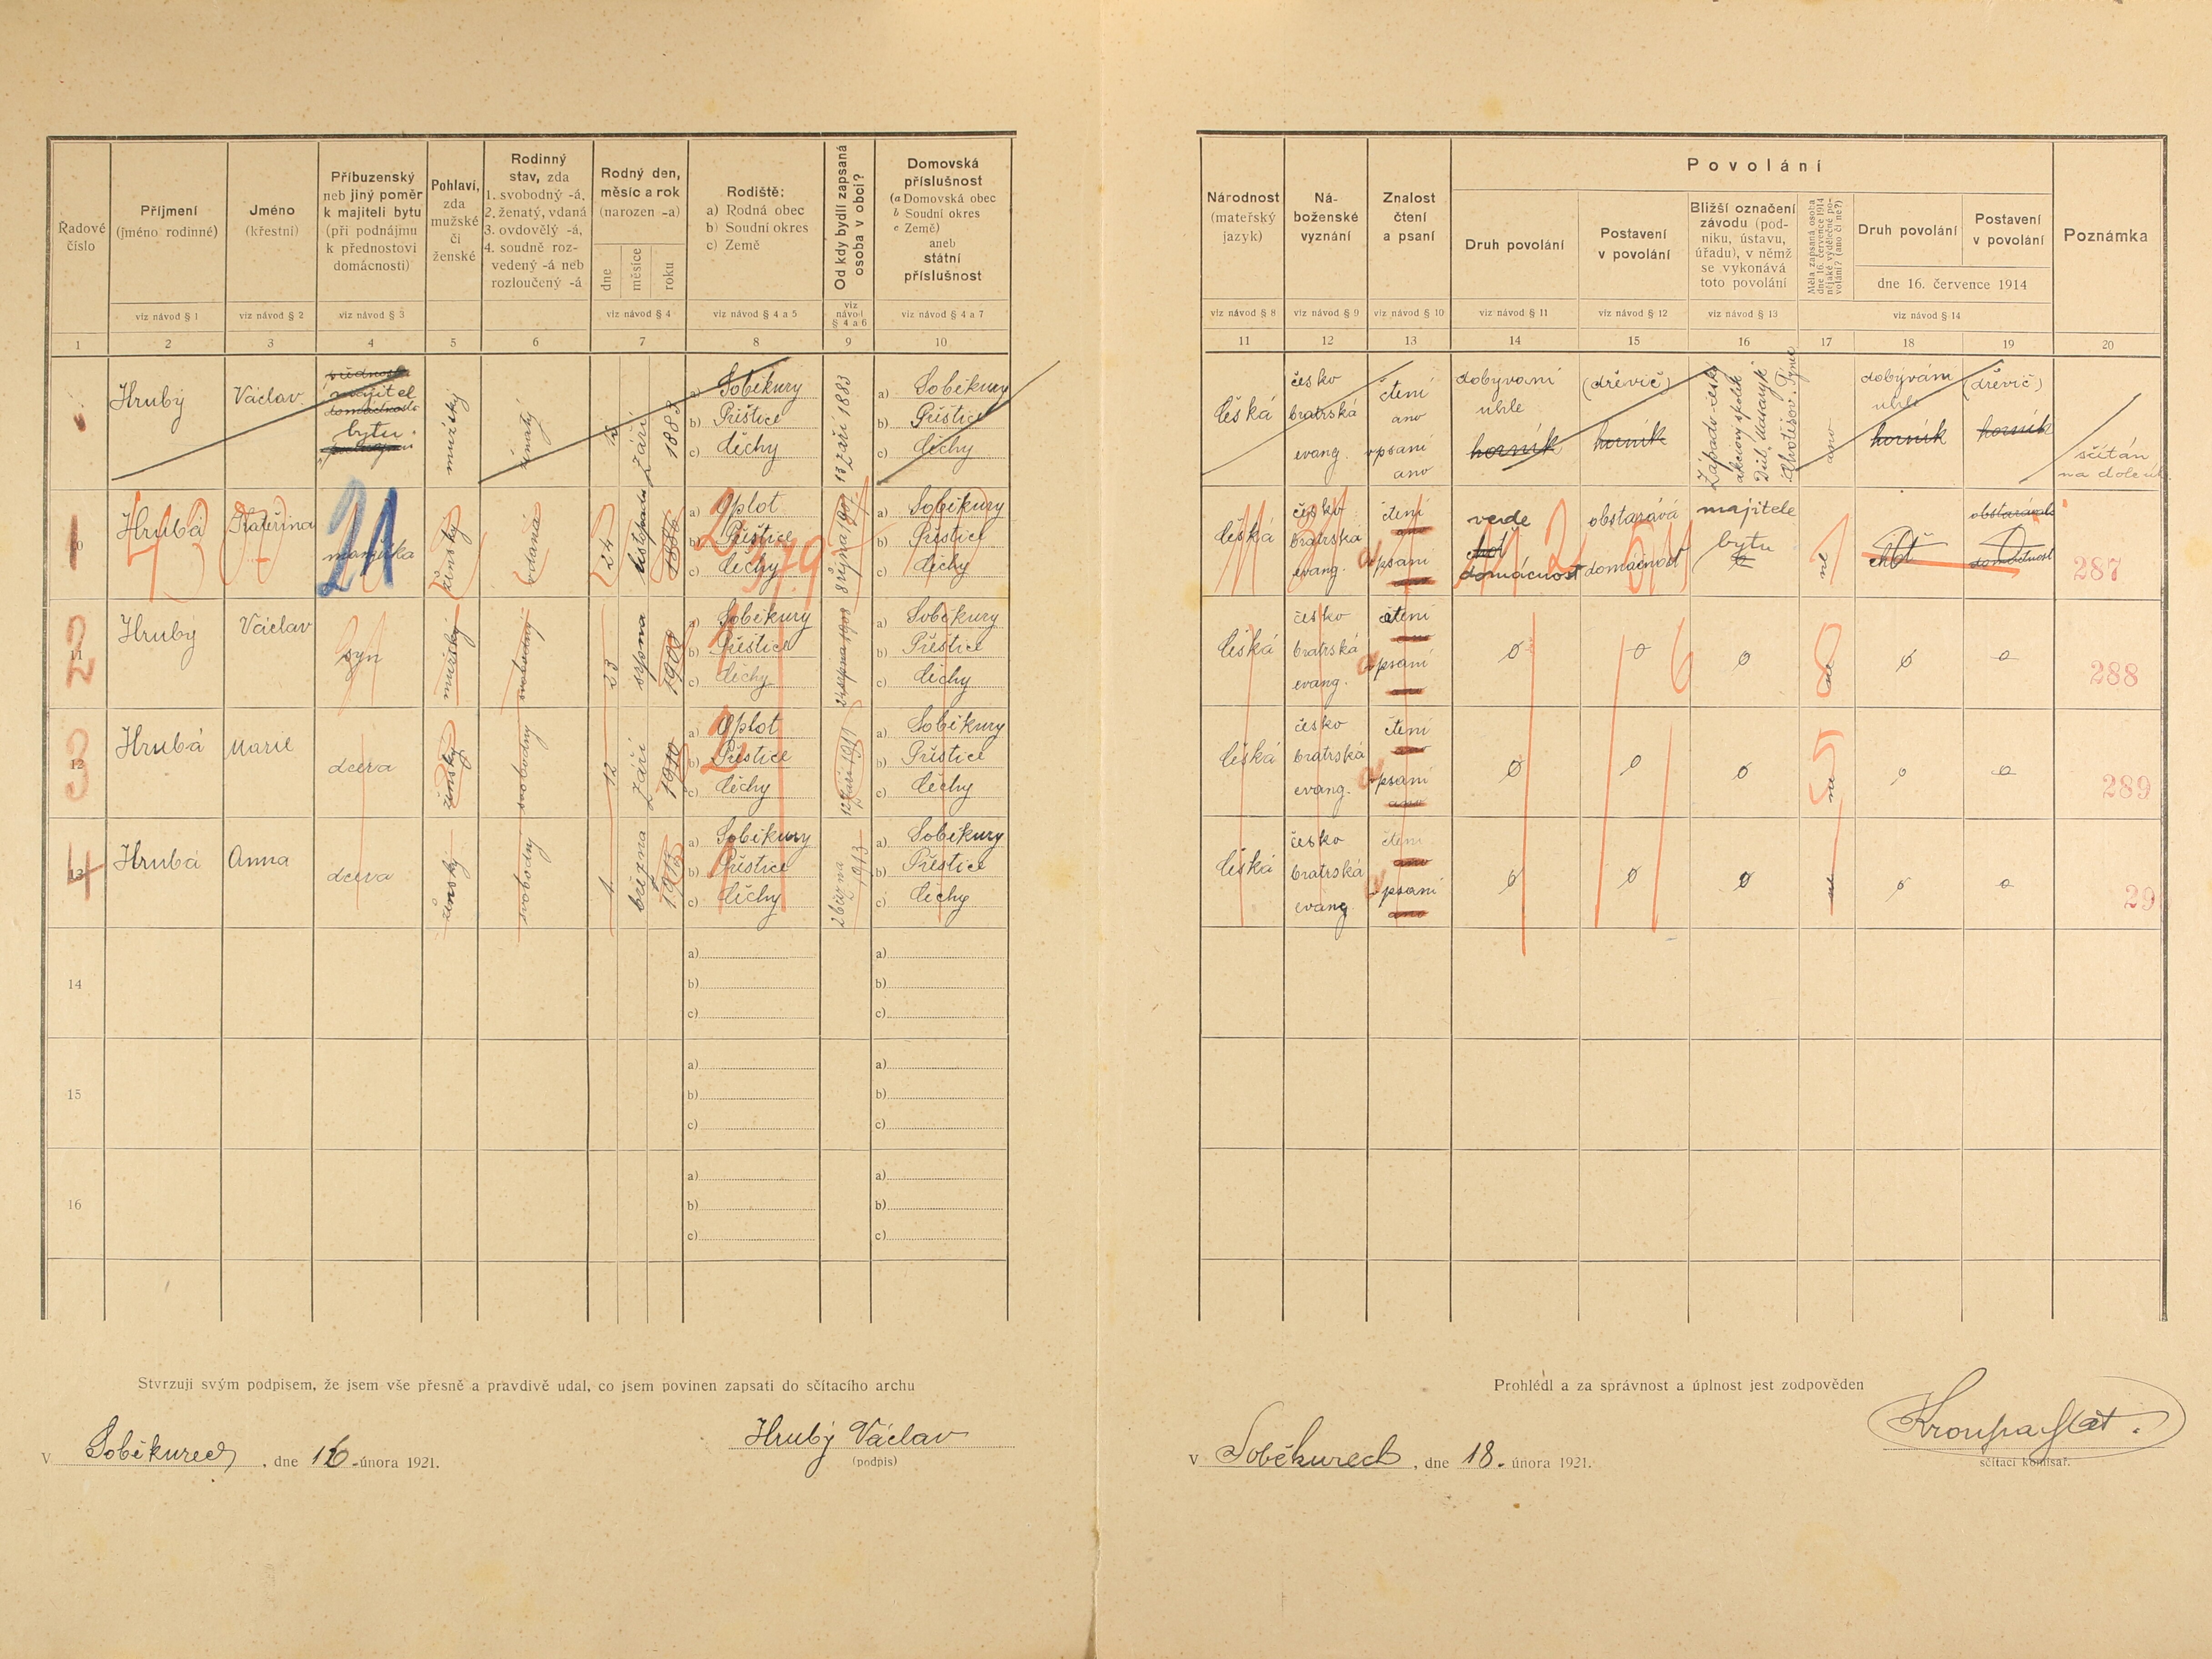 Řadové číslo
Příjmení
(jméno rodinné)
Jméno
(křestní)
Příbuzenský
neb jiný poměr
k majiteli bytu
(při podnájmu
k přednostovi
domácnosti)
Pohlaví,
zda
mužské
či
ženské
Rodinný
stav, zda
1. svobodný -á,
2. ženatý, vdaná
3. ovdovělý -á,
4. soudně roz-
vedený -á neb
rozloučený -á
Rodný den,
měsíc a rok
(narozen -a)
dne
měsíce
roku
Rodiště:
a) Rodná obec
b) Soudní okres
c) Země
Od kdy bydlí zapsaná
osoba v obci?
Domovská
příslušnost
(a Domovská obec
b Soudní okres
c Země)
aneb
státní
příslušnost
viz návod § 1
viz návod § 2
viz návod § 3
viz návod § 4
viz návod § 4 a 5
viz návod § 4 a 6
viz návod § 4 a 7
1 2 3 4 5 6 7 8 9 10
Národnost
(mateřský
jazyk)
Ná-
boženské
vyznání
Znalost
čtení
a psaní
Povolání
Druh povolání
Postavení
v povolání
Bližší označení
závodu (pod-
niku, ústavu,
úřadu), v němž
se vykonává
toto povolání
Měla zapsaná osoba
dne 16. července 1914
nějaké výdělečné po-
volání? (ano či ne?)
Druh povolání
Postavení
v povolání
dne 16. července 1914
Poznámka
viz návod § 8
viz návod § 9
viz návod § 10
viz návod § 11
viz návod § 12
viz návod § 13
viz návod § 14
11 12 13 14 15 16 17 18 19 20
Hrubý
Václav
majitel
domácnosti
bytu
mužský
ženatý
září
1883
a) Soběkury
b) Přištice
c) Čechy
13 září 1883
a) Soběkury
b) Přištice
c) Čechy
česká
česko
bratrská
evang.
čtení
ano
psaní
ano
dobývání
uhle
horník
(dřevič)
horník
Západo-český
akciový spolek
Důl, Masaryk
ano
dobývám
uhle
horník
(dřevič)
horník
sčítán
na dole
1
Hrubá
Kateřina
manželka
21
ženský
vdaná
24
listopadu
a) Oplot
b) Přestice
c) Čechy
a) Soběkury
b) Přestice
c) Čechy
česká
česko
bratrská
evang.
čtení
ano
psaní
ano
vede
domácnost
obstarává
domácnost
majitele
bytu
ne
choť
obstarávala
domácnost
287
2
11
Hrubý
Václav
syn
mužský
svobodný
23
srpna
1908
a) Soběkury
b) Přestice
c) Čechy
a) Soběkury
b) Přestice
c) Čechy
česká
česko
bratrská
evang.
čtení
psaní
0 0 0
ne
0 0
288
3
12
Hrubá
Marie
dcera
ženský
svobodný
12
září
1910
a) Oplot
b) Přestice
c) Čechy
a) Soběkury
b) Přestice
c) Čechy
česká
česko
bratrská
evang.
čtení
psaní
0 0 0
ne
0 0
289
4
13
Hrubá
Anna
dcera
ženský
svobodný
1.
března
1913
a) Soběkury
b) Přestice
c) Čechy
2 března
1913
a) Soběkury
b) Přestice
c) Čechy
česká
česko
bratrská
evang
čtení
ano
psaní
ano
0 0 0
ne
0 0
29
14
a)
b)
c)
a)
b)
c)
15
a)
b)
c)
a)
b)
c)
16
a)
b)
c)
a)
b)
c)
Stvrzuji svým podpisem, že jsem vše přesně a pravdivě udal, co jsem povinen zapsati do sčítacího archu
V Soběkurech, dne 16. února 1921.
Hrubý Václav
(podpis)
Prohlédl a za správnost a úplnost jest zodpověden
V Soběkurech, dne 18. února 1921.
Kroupa
sčítací komisař.